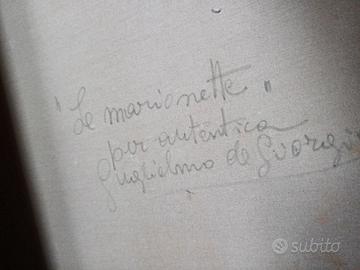 "Le marionette"
per autentica
Guglielmo de Giorgi
subito